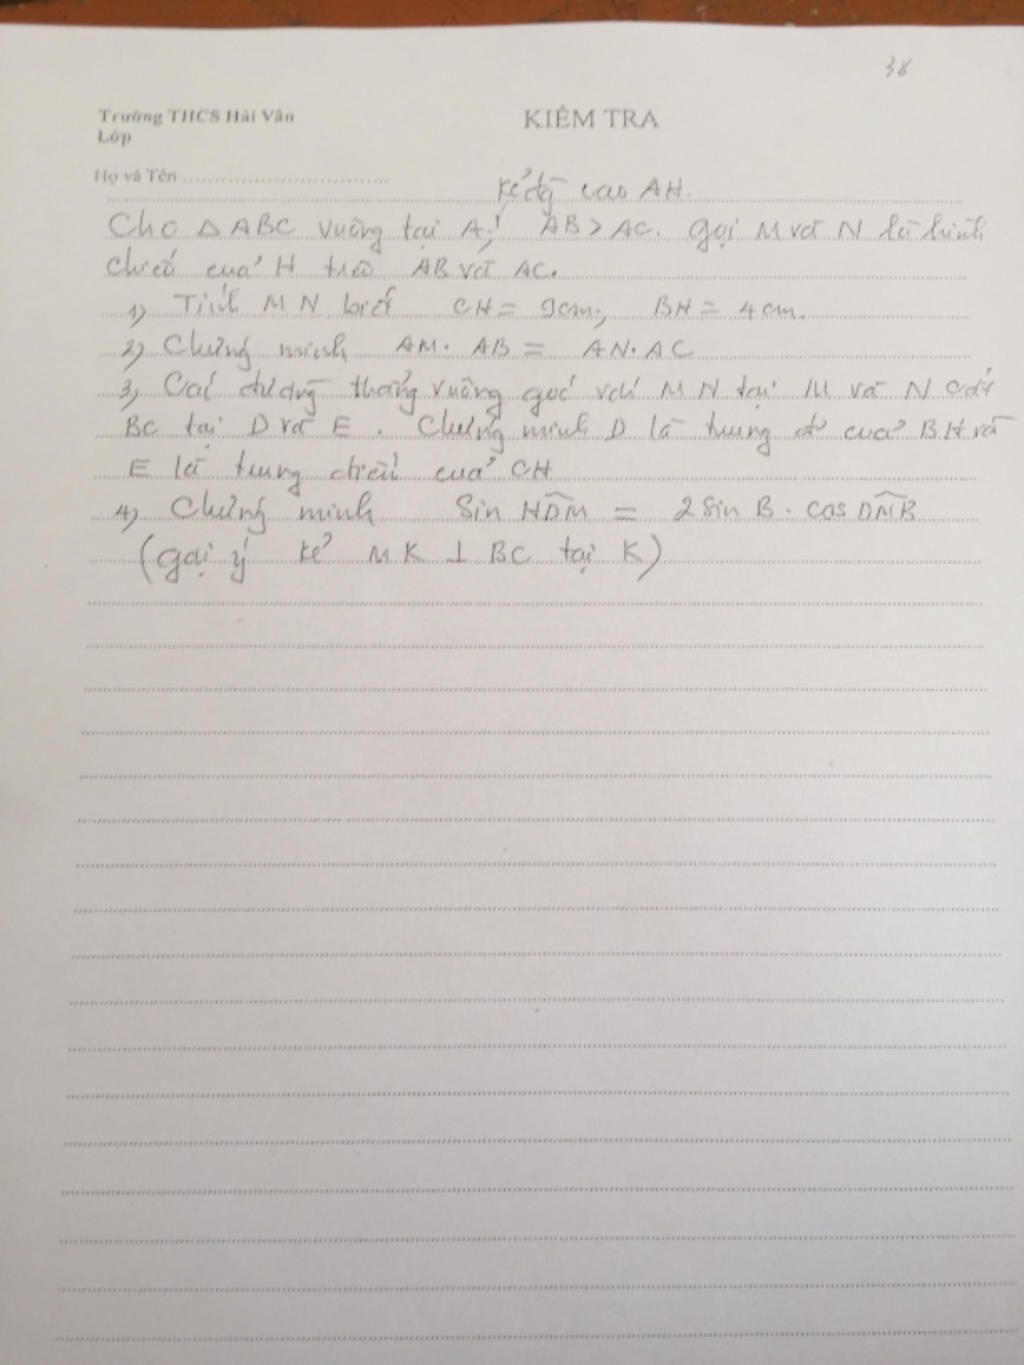 38
Trường THCS Hải Vân
KIỂM TRA
Lớp
Họ và Tên
Kẻ đg cao AH.
Cho △ ABC vuông tại A; AB > AC. Gọi M và N là hình
chiếu của H trên AB và AC.
1) Tính MN biết CH = 9cm; BH = 4cm.
2) Chứng minh AM. AB = AN. AC
3) Các đường thẳng vuông góc với MN tại M và N cắt
BC tại D và E. Chứng minh D là trung đ' của BH và
E là trung điểm của CH
4) Chứng minh Sin HDM = 2 Sin B. Cos DMB
(gợi ý kẻ MK ⊥ BC tại K)